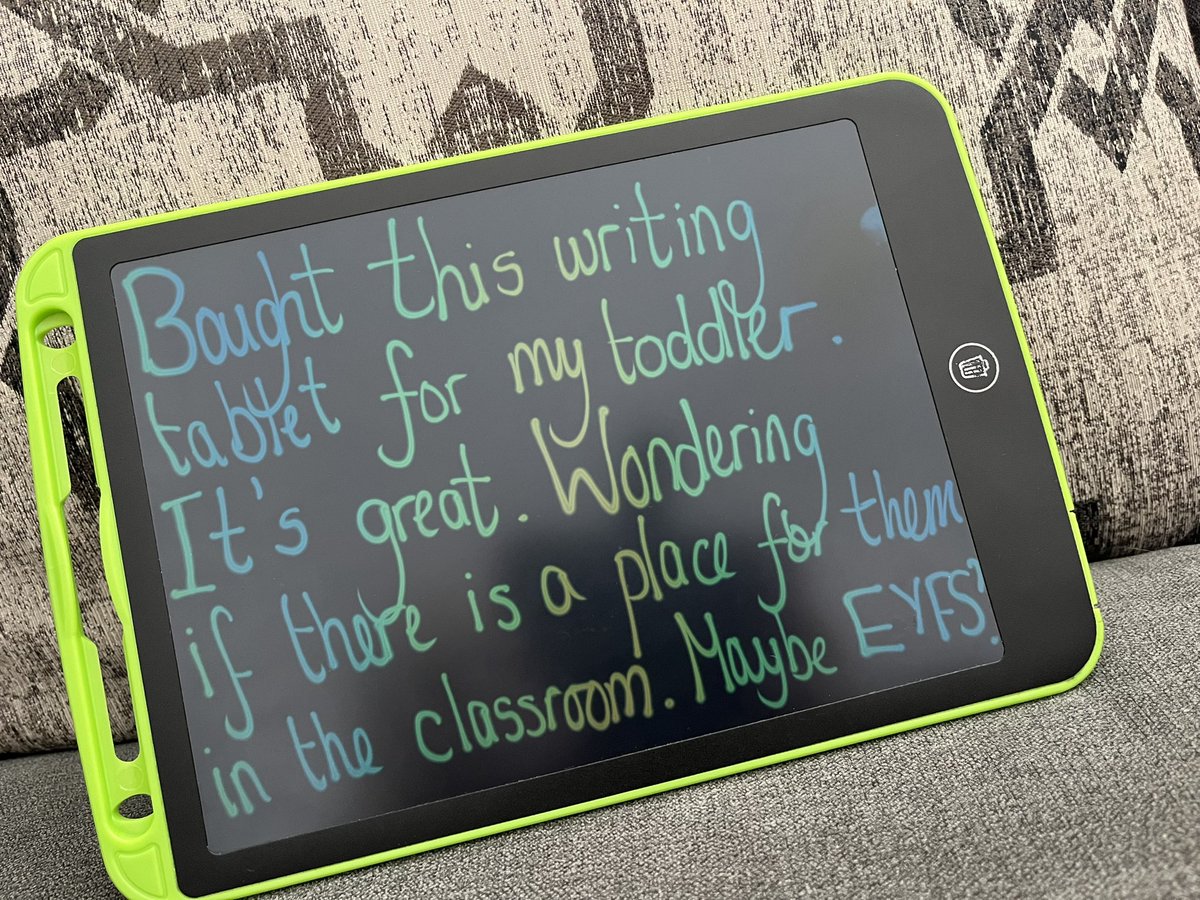 Bought this writing
tablet for my toddler.
It's great. Wondering
if there is a place for them
in the classroom. Maybe EYFS?